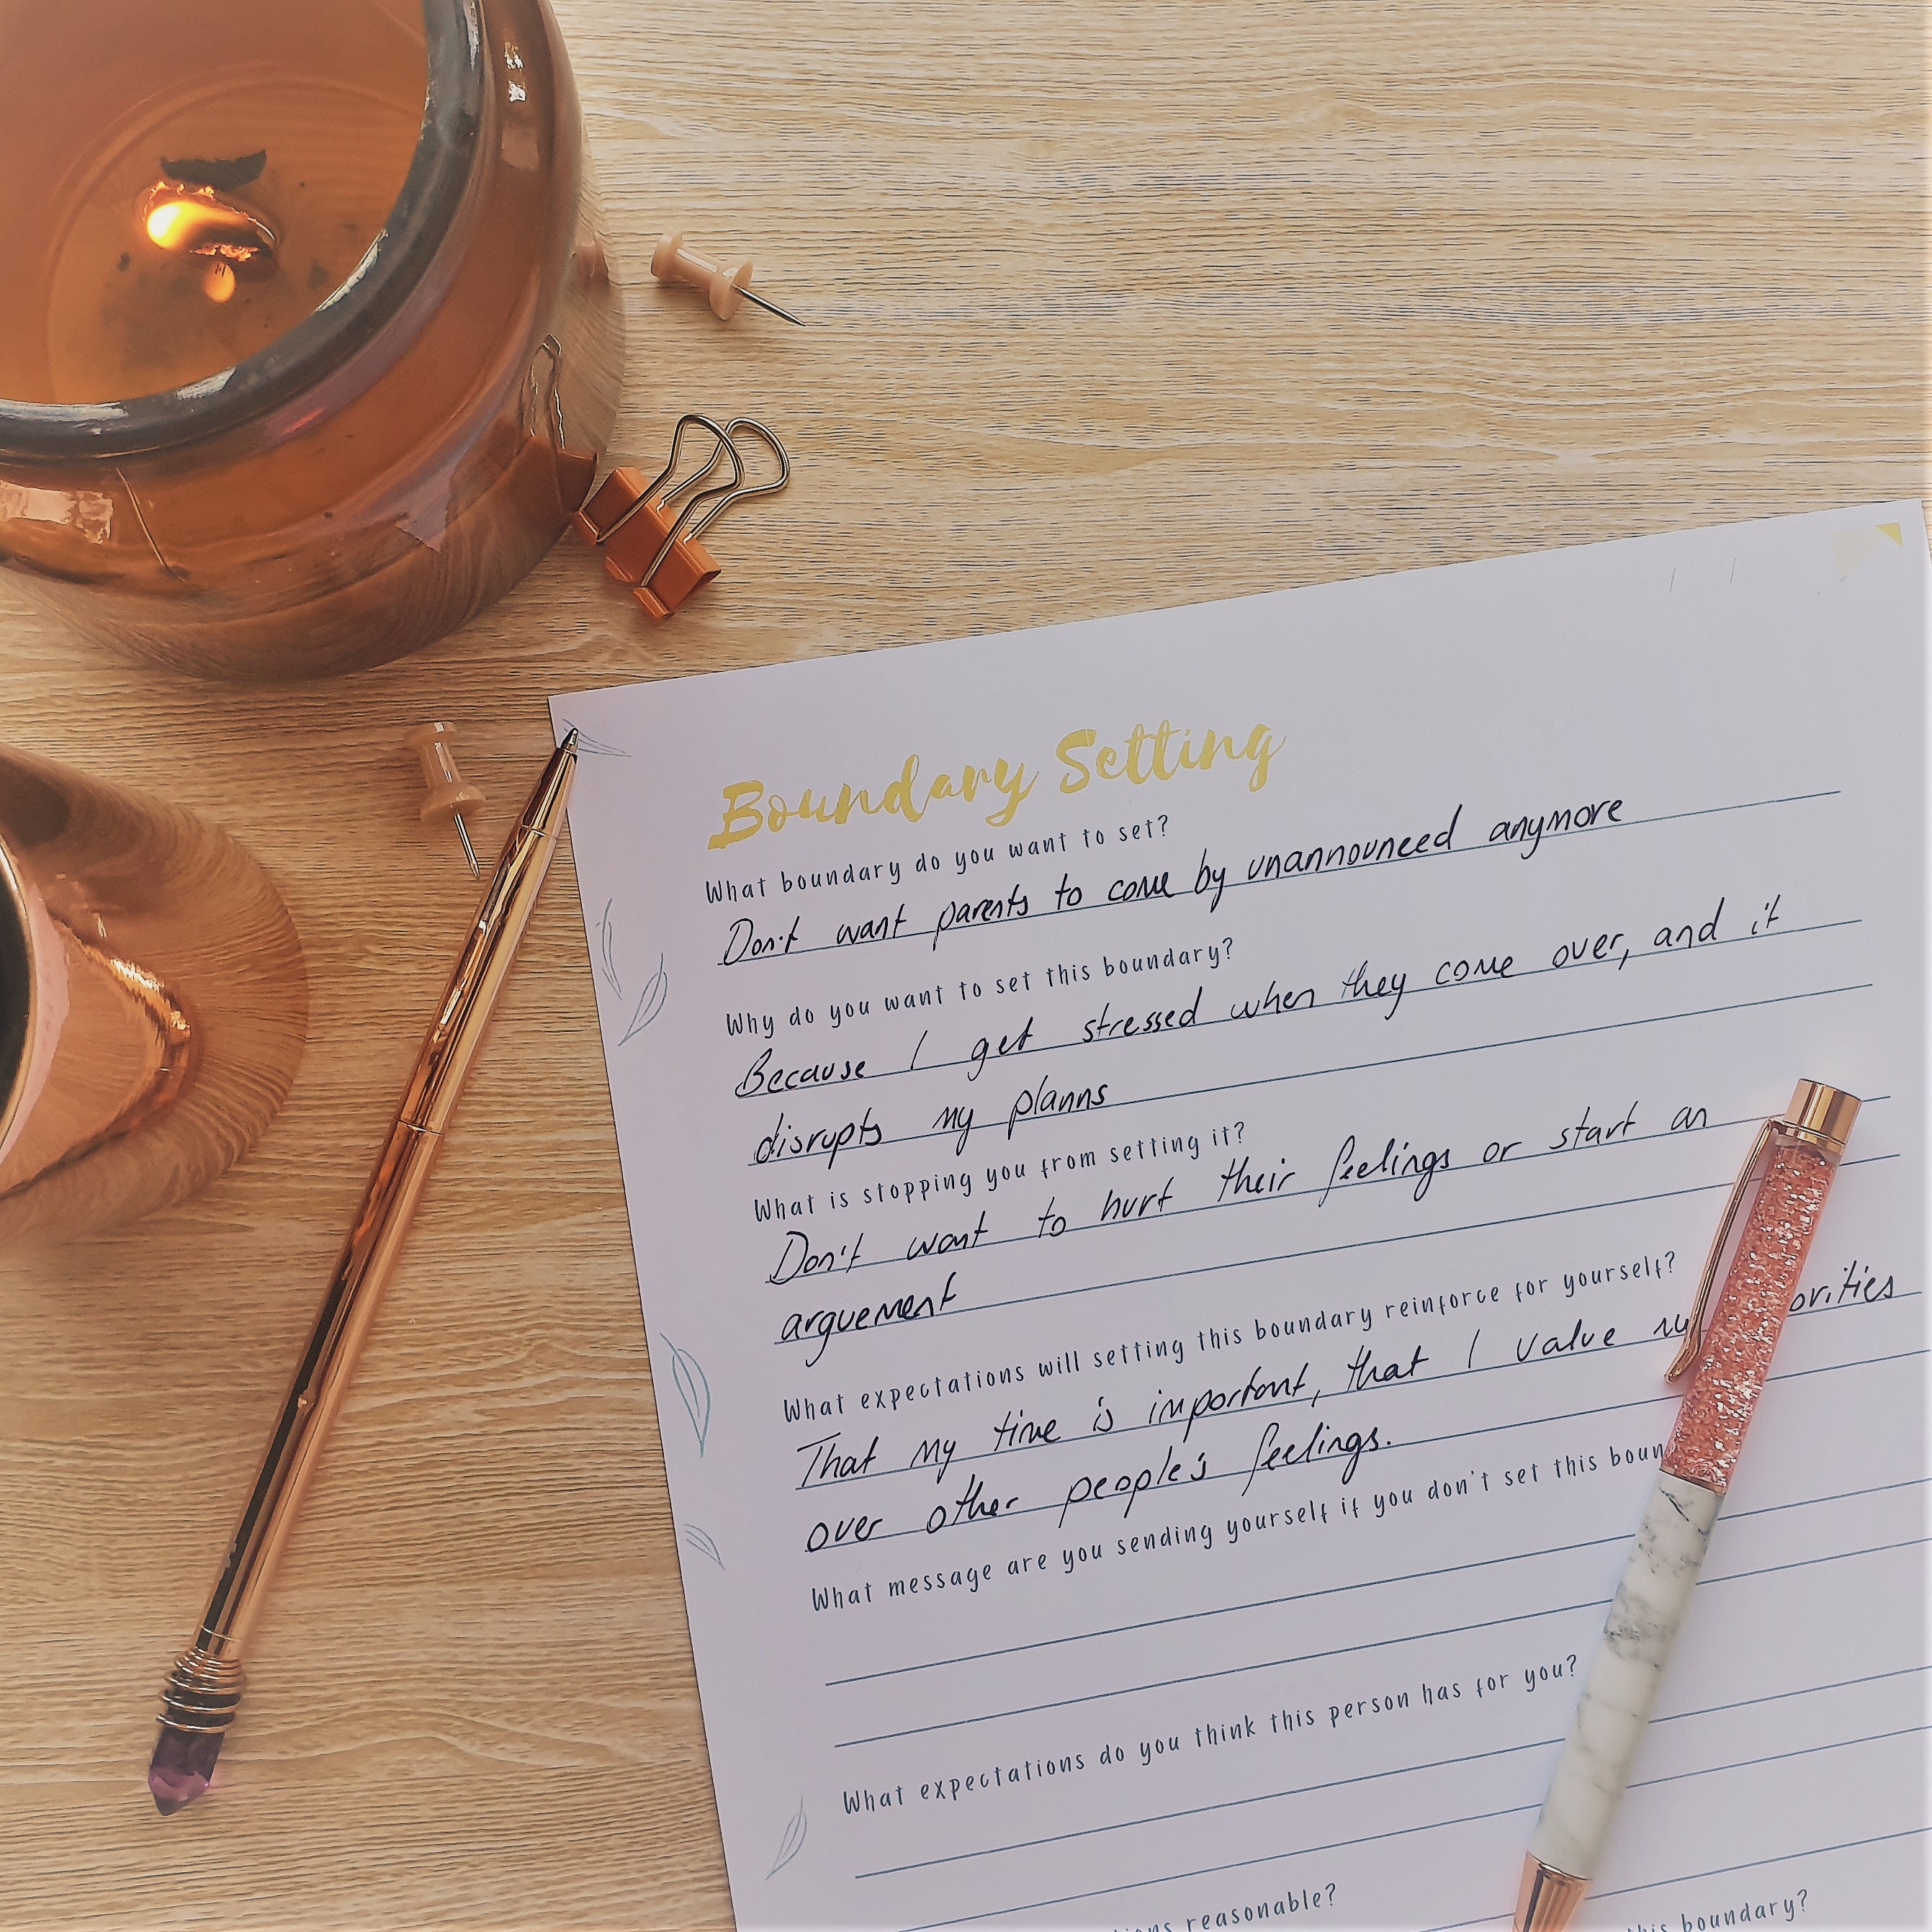 Boundary Setting
What boundary do you want to set?
Don't want parents to come by unannouneed anymore
Why do you want to set this boundary?
Because I get stressed when they come over, and it
disrupts my planns
What is stopping you from setting it?
Don't want to hurt their feelings or start an
arguement
What expectations will setting this boundary reinforce for yourself?
That my time is important, that I value orities
over other people's feelings.
What message are you sending yourself if you don't set this boun
What expectations do you think this person has for you?
reasonable?
this boundary?